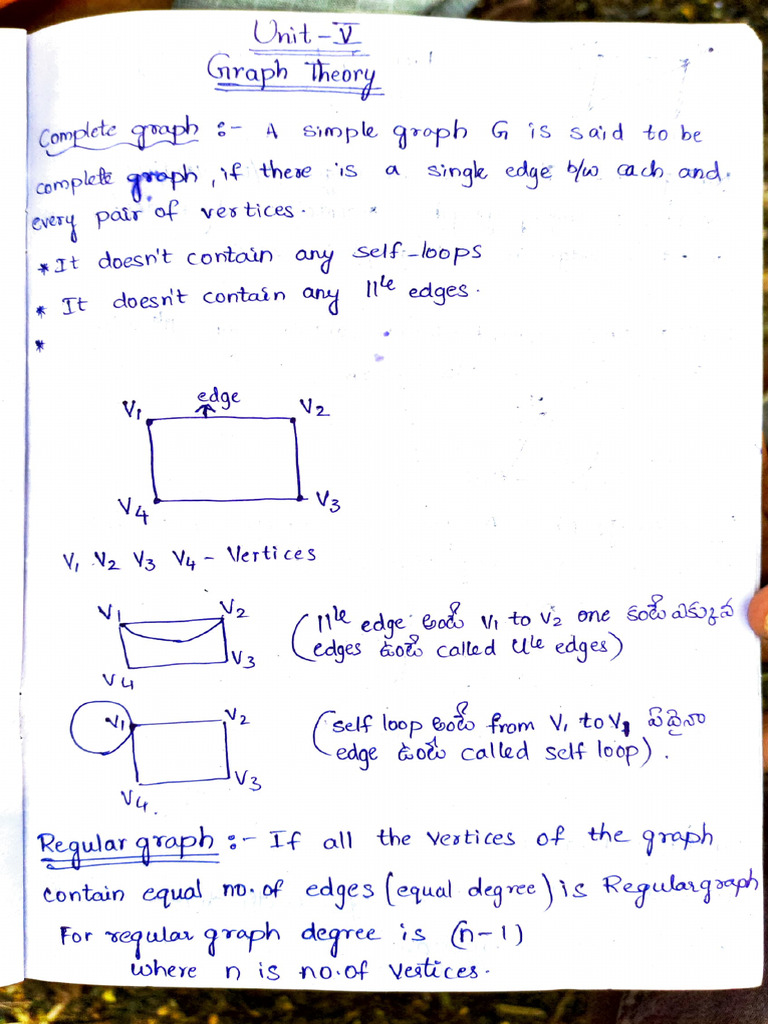 Unit - V
Graph Theory
Complete graph :- A simple graph G is said to be
complete graph, if there is a single edge b/w each and
every pair of vertices.
* It doesn't contain any self-loops
* It doesn't contain any 11le edges.
*
edge
V1 V2
V4 V3
V1 V2 V3 V4 - Vertices
V1 V2
V3
V4
(11le edge అంటే V1 to V2 one కంటే ఎక్కువ
edges ఉంటే called 11le edges)
V1 V2
V3
V4.
(self loop అంటే from V1 to V1 ఏదైనా
edge ఉంటే called self loop).
Regular graph :- If all the vertices of the graph
contain equal no. of edges (equal degree) is Regulargraph
For regular graph degree is (n-1)
where n is no. of vertices.